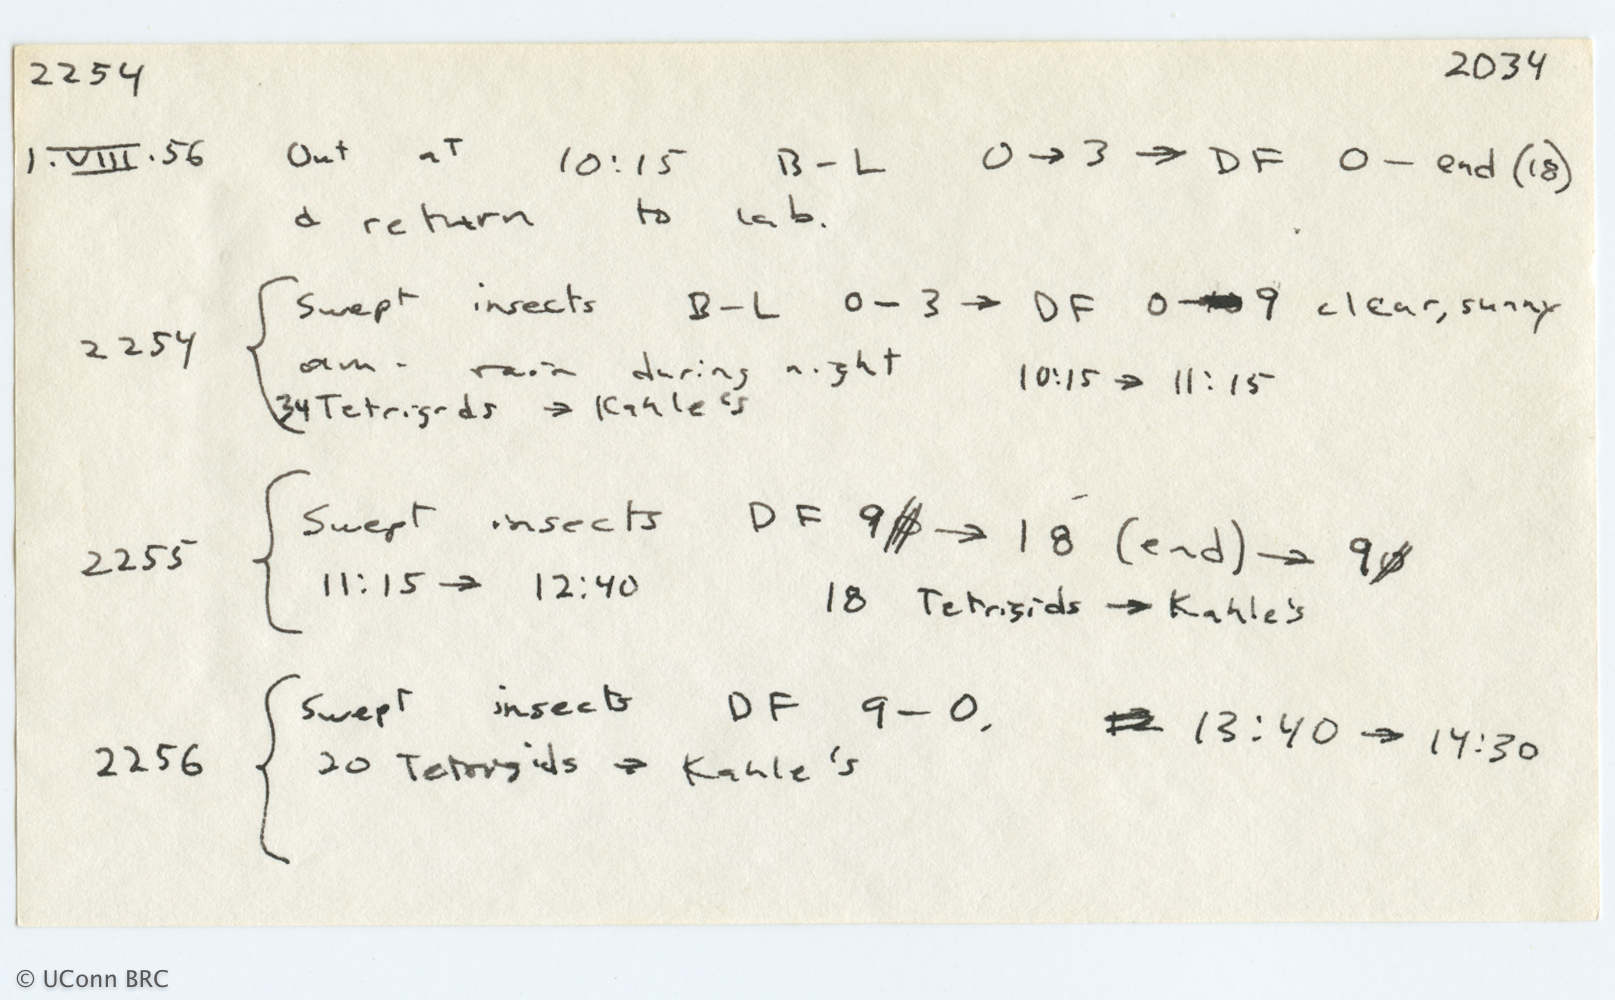 2254 2034
1.VIII.56 Out at 10:15 B-L 0 → 3 → DF 0 - end (18)
& return to lab.
2254 Swept insects B-L 0-3 → DF 0-9 clear, sunny
am - rain during night 10:15 → 11:15
34 Tetrigids → Kahle's
2255 Swept insects DF 9 → 18 (end) → 9
11:15 → 12:40 18 Tetrigids → Kahle's
2256 Swept insects DF 9-0. 13:40 → 14:30
20 Tetrigids → Kahle's
© UConn BRC